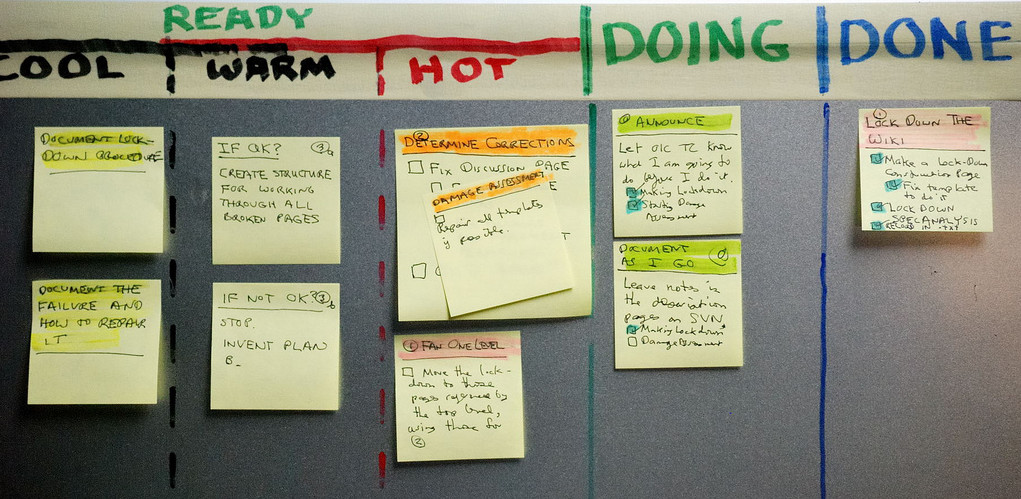 READY
COOL
WARM
HOT
DOING
DONE
DOCUMENT LOCK-
DOWN PROCEDURE
DOCUMENT THE
FAILURE AND
HOW TO REPAIR
IT
IF OK? 3a
CREATE STRUCTURE
FOR WORKING
THROUGH ALL
BROKEN PAGES
IF NOT OK? 3b
STOP.
INVENT PLAN
B_
2
DETERMINE CORRECTIONS
FIX DISCUSSION PAGE
E
DAMAGE ASSESSMENT
Repair all templates
if possible.
T
1 FAN ONE LEVEL
Move the lock-
down to those
pages referred by
the top level,
using those for
2
0 ANNOUNCE
Let OIC TC know
what I am going to
do before I do it.
Making Lockdown
Starting Damage
Assessment
DOCUMENT
AS I GO 0
Leave notes in
the description
pages on SVN
Making Lockdown
Damage Assessment
1
LOCK DOWN THE
WIKI
Make a Lock-Down
Construction Page
Fix template
to do it
LOCK DOWN
SPEC ANALYSIS
RECORD IN .txt